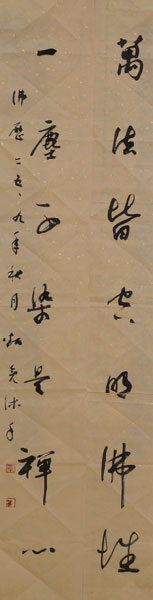 萬法皆空明佛性
一塵不染是禪心
佛歷二五〇九年秋月
沐手